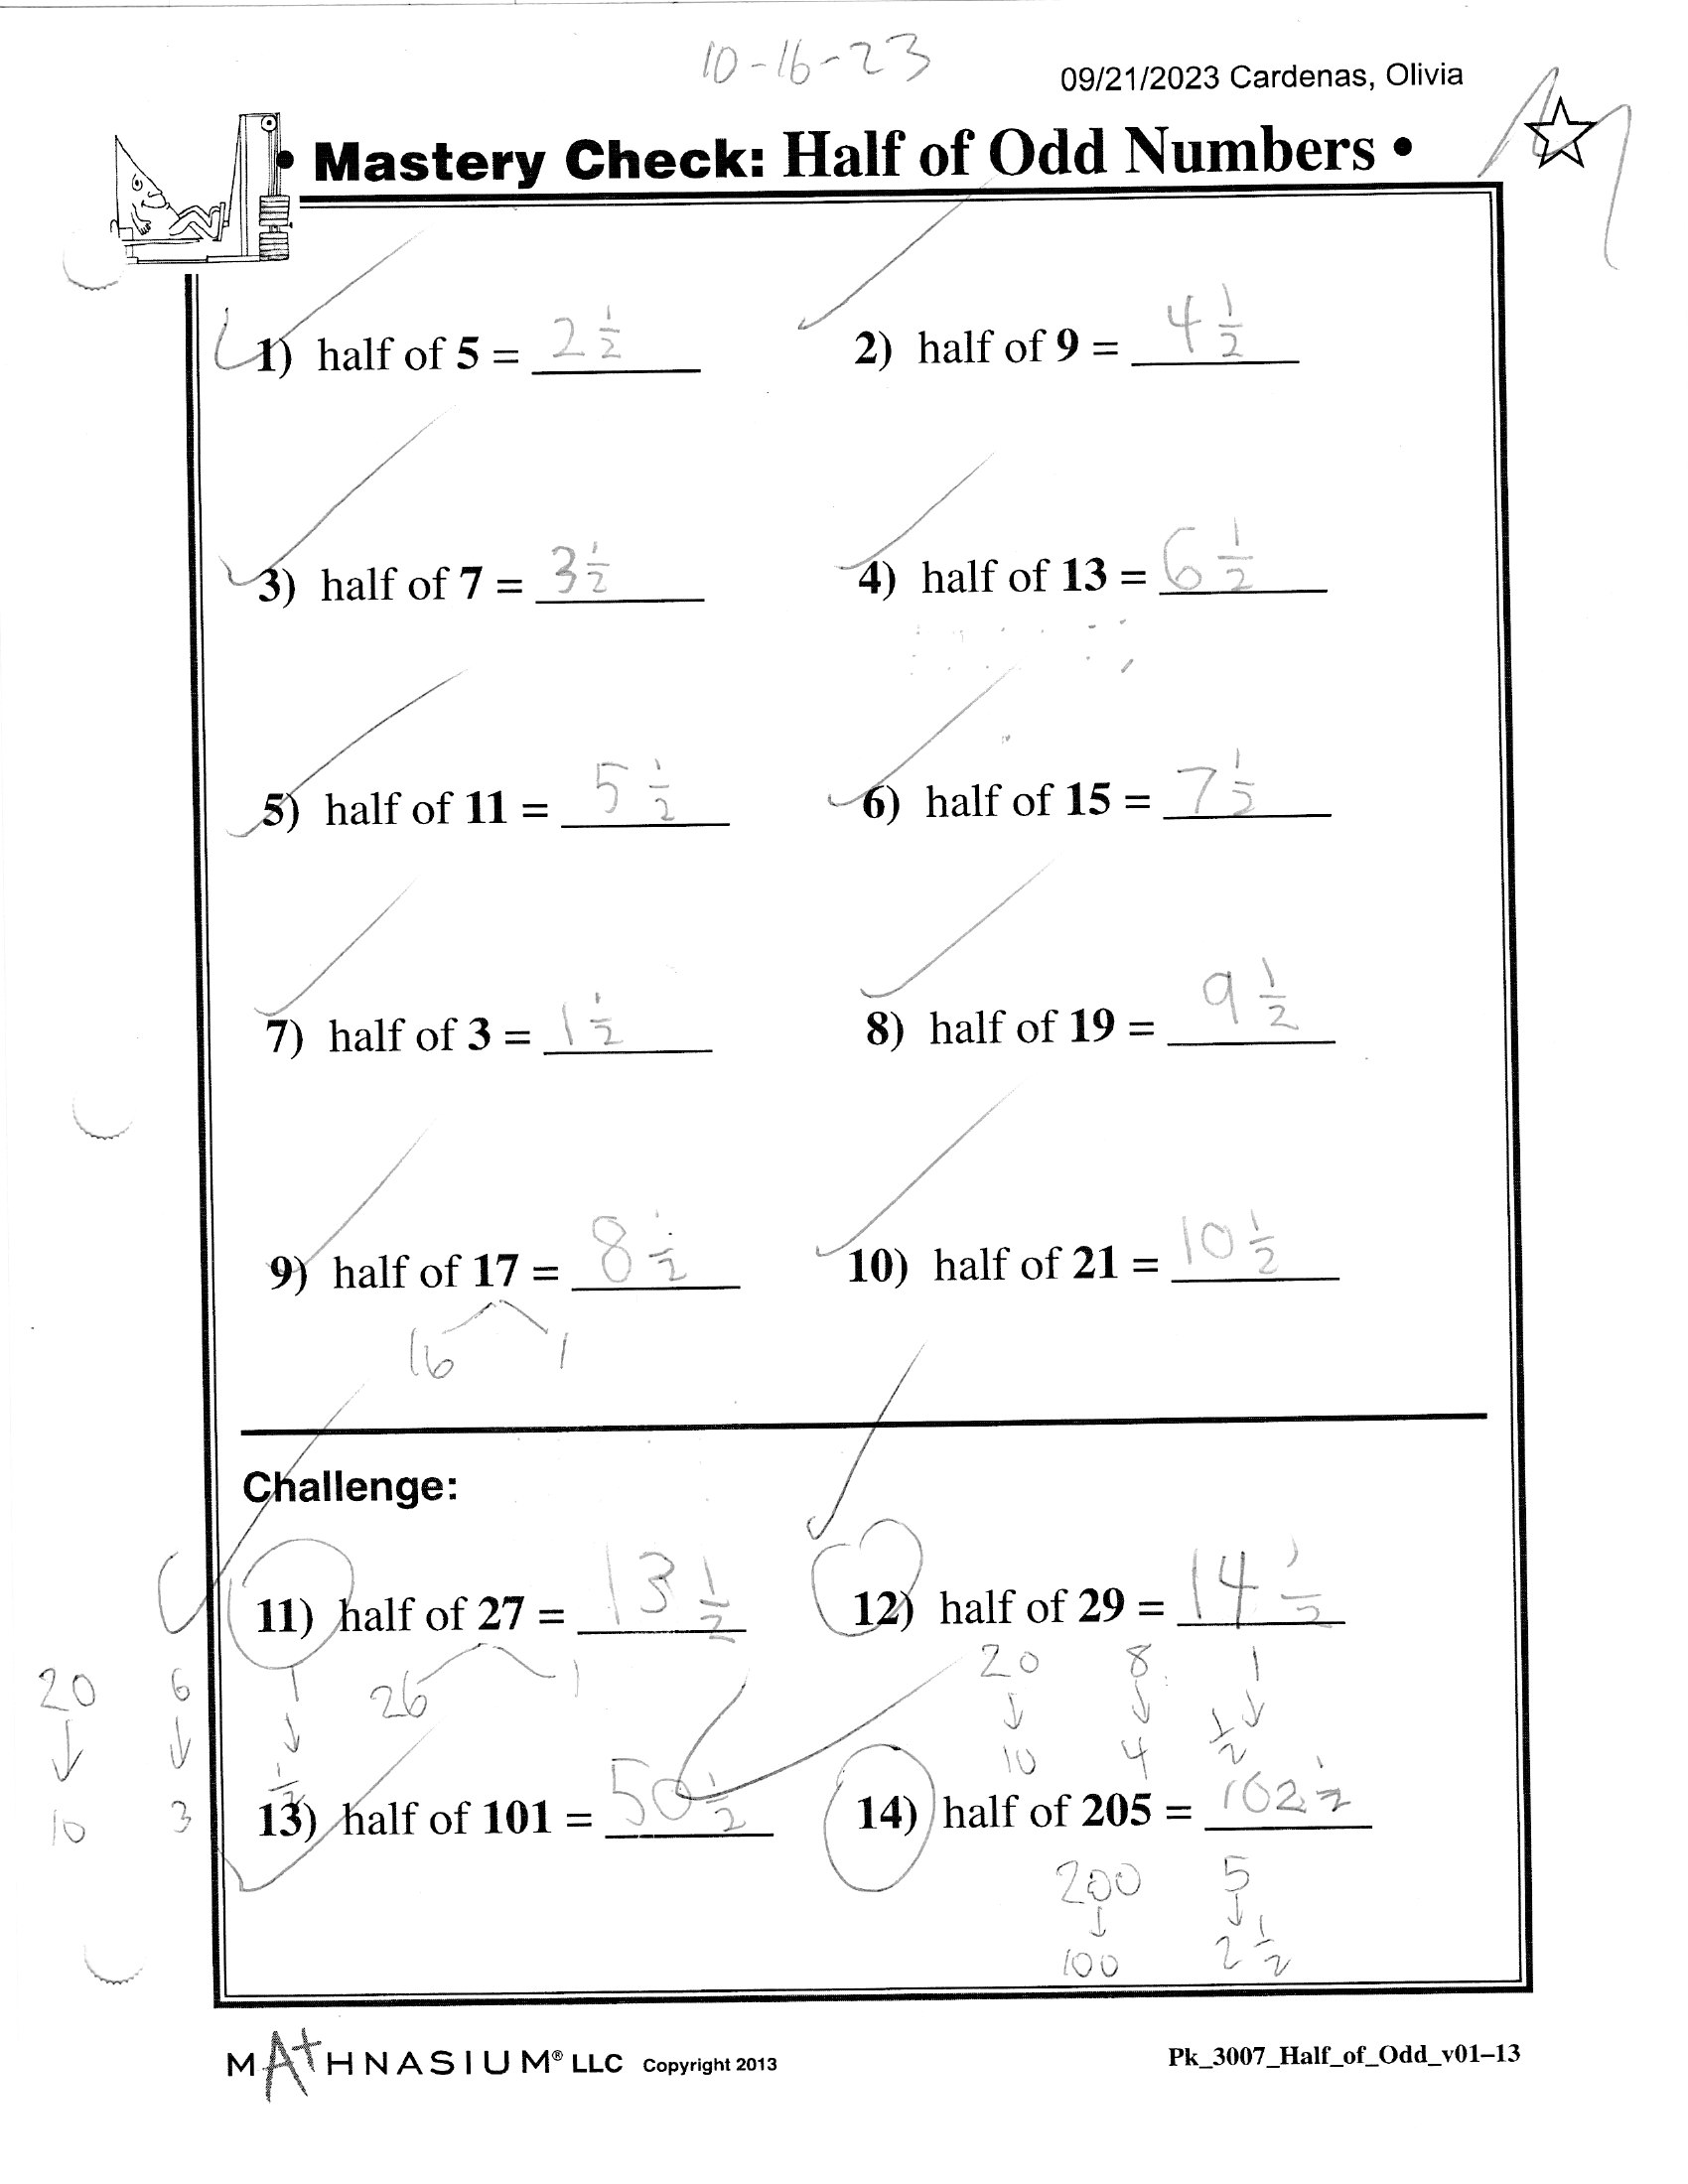 10-16-23
09/21/2023 Cardenas, Olivia
• Mastery Check: Half of Odd Numbers •
1) half of 5 = 2 1/2
2) half of 9 = 4 1/2
3) half of 7 = 3 1/2
4) half of 13 = 6 1/2
5) half of 11 = 5 1/2
6) half of 15 = 7 1/2
7) half of 3 = 1 1/2
8) half of 19 = 9 1/2
9) half of 17 = 8 1/2
16 1
10) half of 21 = 10 1/2
Challenge:
11) half of 27 = 13 1/2
26 1
20 6 1
10 3 1/2
12) half of 29 = 14 1/2
20 8 1
10 4 1/2
13) half of 101 = 50 1/2
14) half of 205 = 102 1/2
200 5
100 2 1/2
MATHNASIUM® LLC Copyright 2013
Pk_3007_Half_of_Odd_v01–13